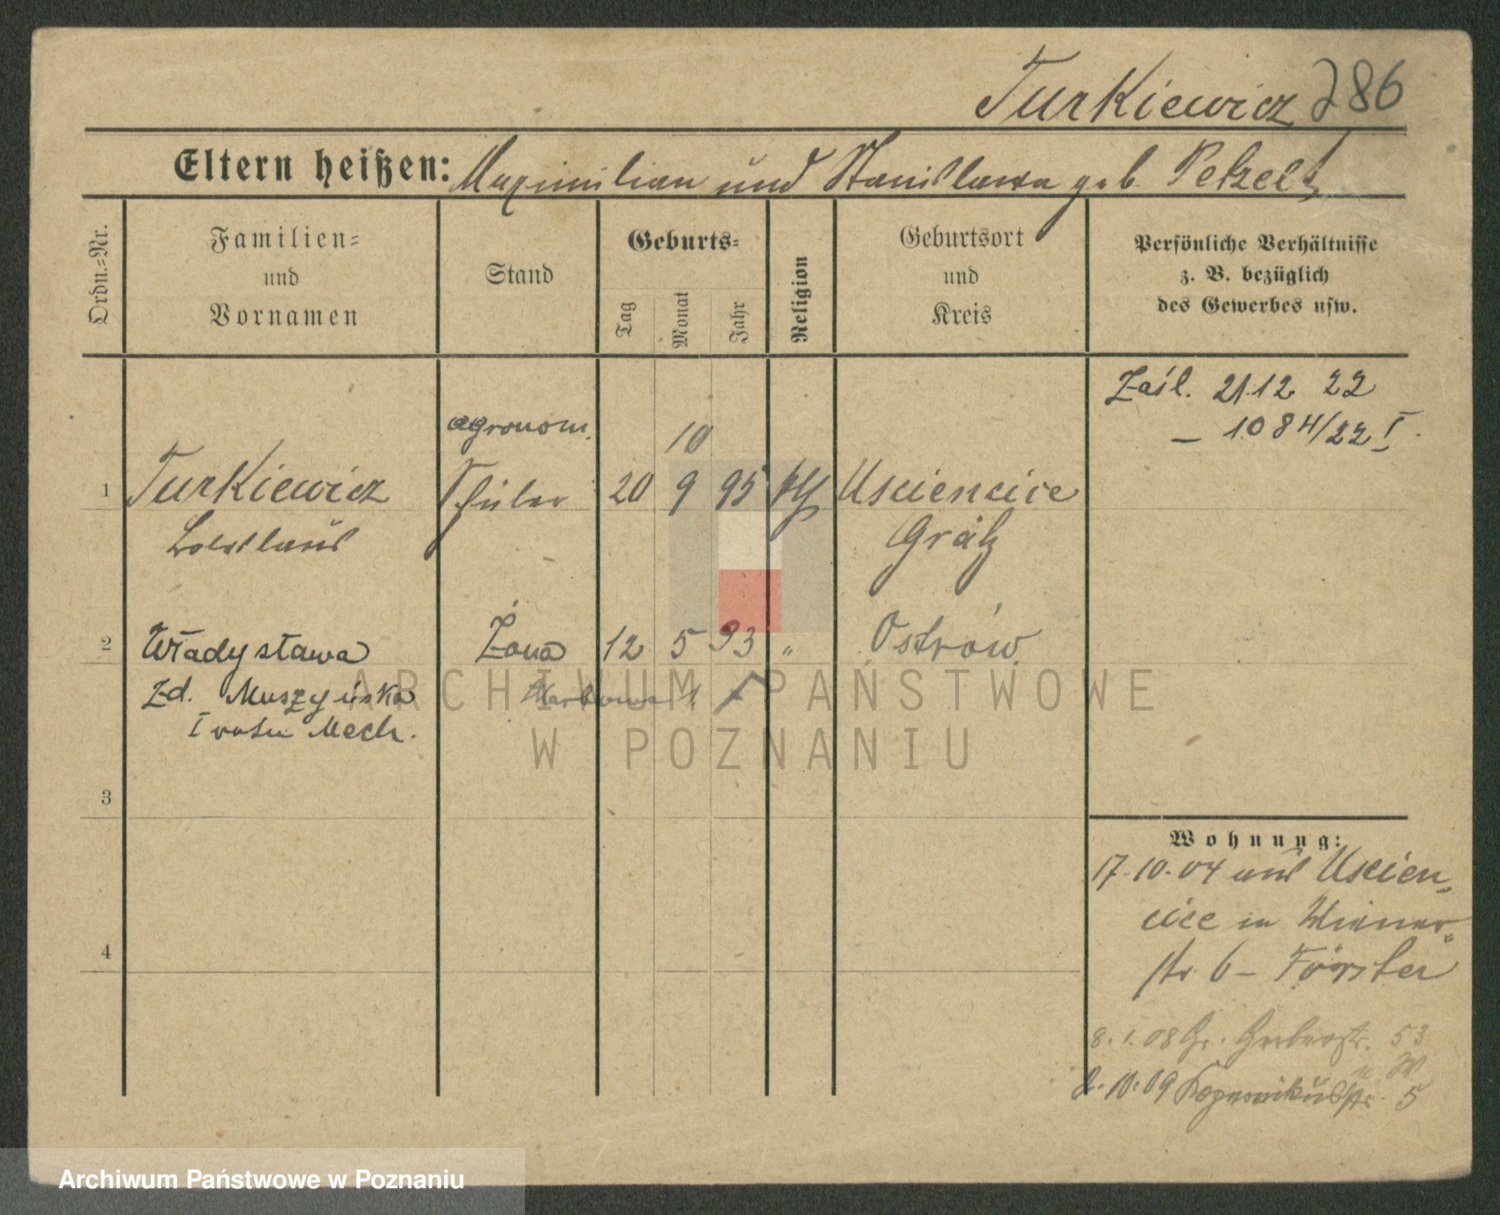 Turkiewicz 286
Eltern heißen: Maximilian und Stanislawa geb. Petzelt
Ordn.-Nr.
Familien-
und
Vornamen
Stand
Geburts-
Tag
Monat
Jahr
Religion
Geburtsort
und
Kreis
Persönliche Verhältnisse
z. B. bezüglich
des Gewerbes usw.
Zaśl. 21.12 22
— 1084/22 I.
agronom.
10
1 Turkiewicz Schüler 20 9 95 kth Usciencice
Boleslaus Grätz
2 Władysława Żona 12 5 93 " Ostrów
Zd. Muszyńska
I voto Mech.
ARCHIWUM PAŃSTWOWE
W POZNANIU
3
Wohnung:
17.10.04 aus Uscien-
cice in Wiener-
str 6 – Förster
4
8.1.08 Gr. Gerberstr. 53
2.10.09 Kopernikusstr. 5
Archiwum Państwowe w Poznaniu